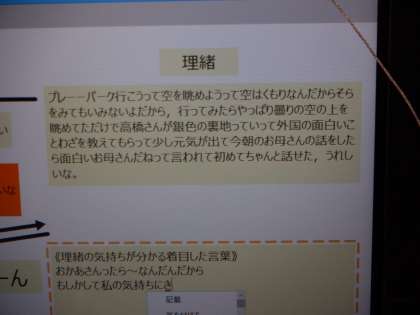 理緒
プレーーパーク行こうって空を眺めようって空はくもりなんだからそら
をみてもいみないよだから，行ってみたらやっぱり曇りの空の上を
眺めてただけで高橋さんが銀色の裏地っていって外国の面白いこ
とわざを教えてもらって少し元気が出て今朝のお母さんの話をした
ら面白いお母さんだねって言われて初めてちゃんと話せた，うれし
いな。
い
いな
ーん
《理緒の気持ちが分かる着目した言葉》
おかあさんったら～なんだんだから
もしかして私の気持ちにき
記載